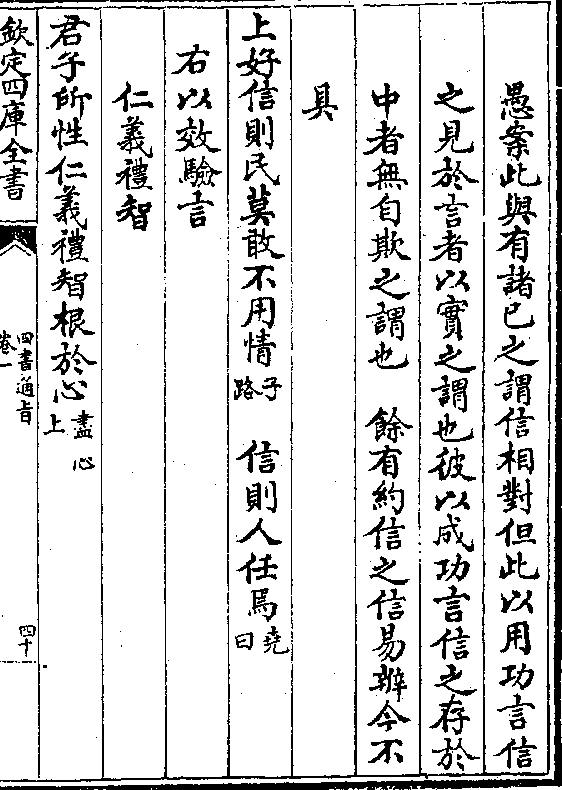 愚案此與有諸已之謂信相對但此以用功言信
之見於言者以實之謂也彼以成功言信之存於
中者無自欺之謂也　餘有約信之信易辨今不
具
上好信則民莫敢不用情子路　信則人任焉堯曰
右以效驗言
仁義禮智
君子所性仁義禮智根於心盡心上
欽定四庫全書
四書通旨
卷一
四十